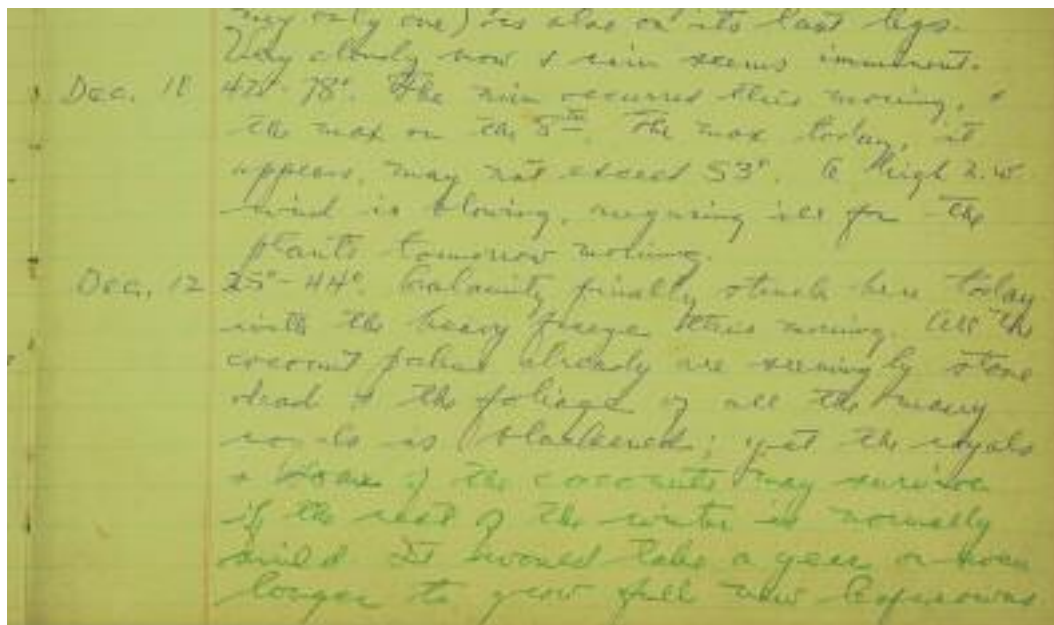 my only one) is also on its last legs.
Very cloudy now & rain seems imminent.
Dec. 11 42°-78°. The min occurred this morning, &
the max on the 8th. The max today, it
appears, may not exceed 53°. A high n.w.
wind is blowing, auguring ill for the
plants tomorrow morning.
Dec. 12 25°-44°. Calamity finally struck here today
with the heavy freeze this morning. All the
coconut palms already are seemingly stone
dead & the foliage of all the many
royals is blackened; yet the royals
& some of the coconuts may survive
if the rest of the winter is normally
mild. It would take a year or even
longer to grow full new leaf crowns.